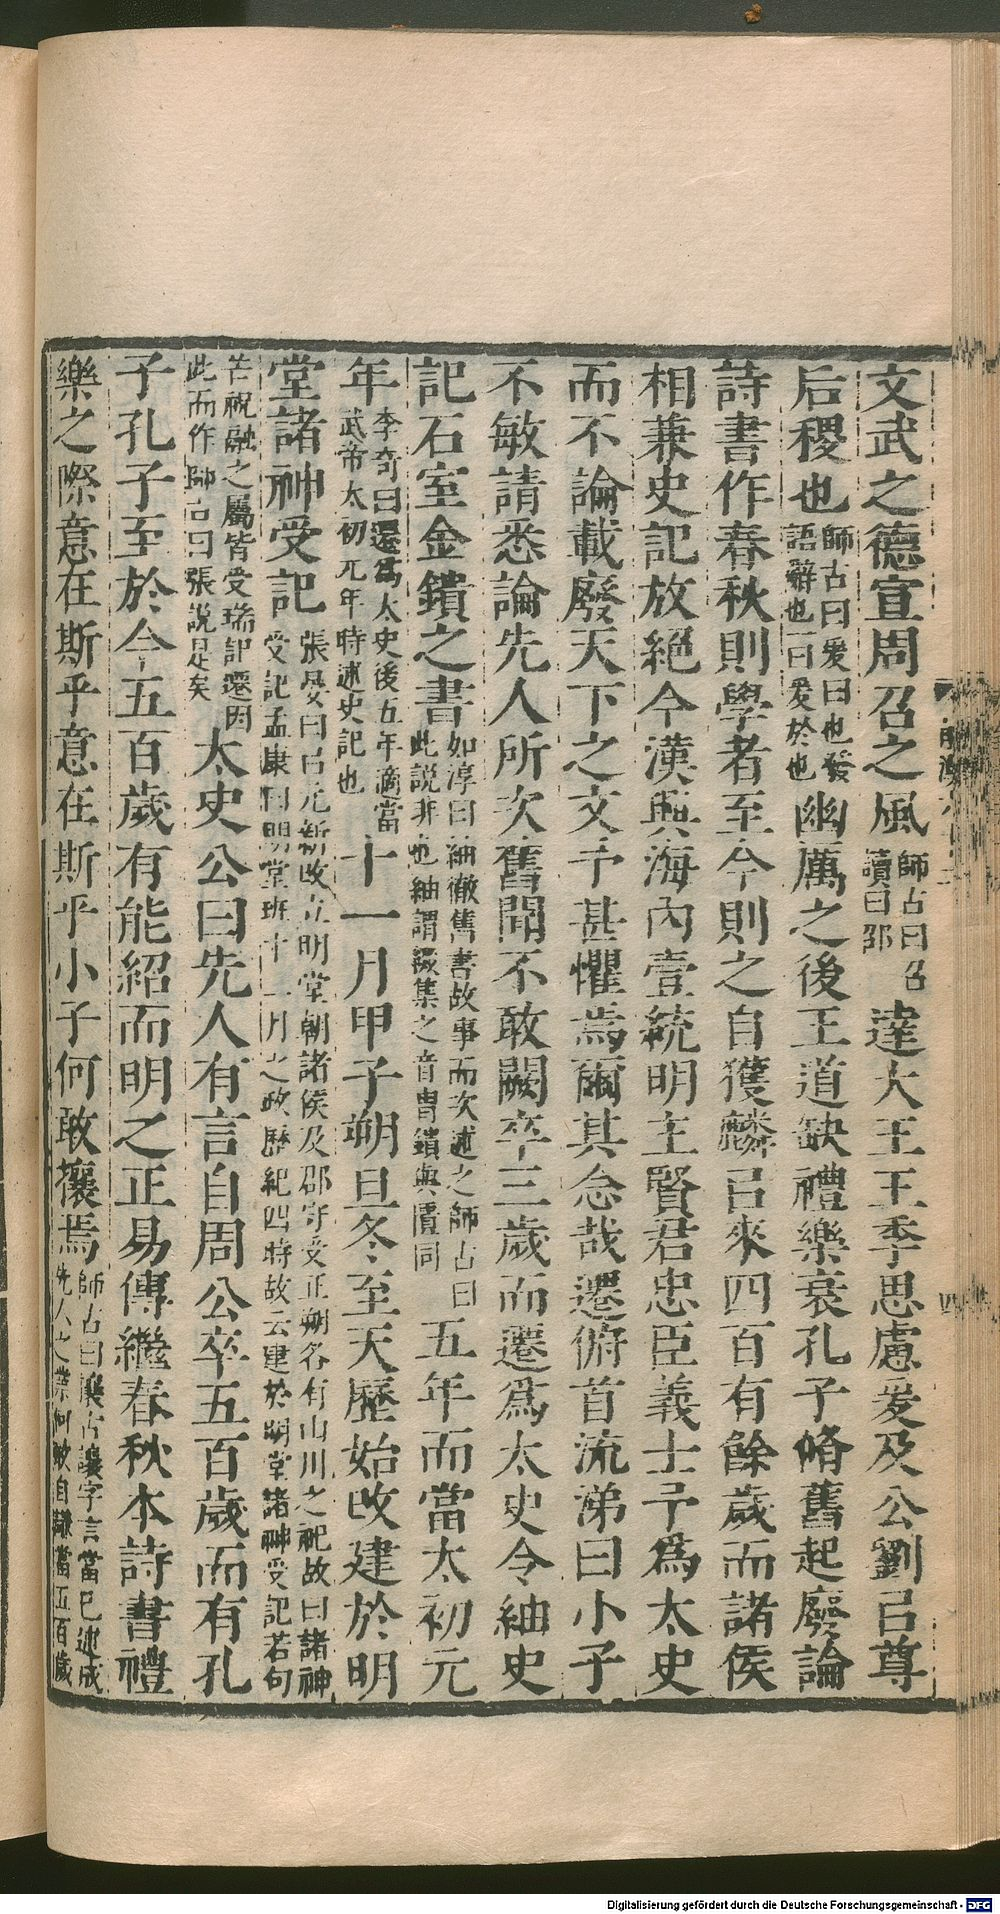 文武之德宣周召之風師古曰召讀曰邵達大王王季思慮爰及公劉㠯尊
后稷也師古曰爰曰也發語辭也一曰爰於也幽厲之後王道缺禮樂衰孔子脩舊起廢論
詩書作春秋則學者至今則之自獲麟㠯來四百有餘歲而諸侯
相兼史記放絕今漢興海內壹統明主賢君忠臣義士予爲太史
而不論載廢天下之文予甚懼焉爾其念哉遷俯首流涕曰小子
不敏請悉論先人所次舊聞不敢闕卒三歲而遷爲太史令紬史
記石室金鐀之書如淳曰紬徹舊書故事而次述之師古曰此說非也紬謂綴集之音冑鐀與匱同五年而當太初元
年李奇曰遷爲太史後五年適當武帝太初元年時述史記也十一月甲子朔旦冬至天歷始改建於明
堂諸神受記張晏曰㠯元新改立明堂朝諸侯及郡守受正朔各有山川之祀故曰諸神受記孟康曰明堂班十二月之政歷紀四時故云建於明堂諸神受記若句
芒祝融之屬皆受瑞記遷因此而作師古曰張說是矣太史公曰先人有言自周公卒五百歲而有孔
子孔子至於今五百歲有能紹而明之正易傳繼春秋本詩書禮
樂之際意在斯乎意在斯乎小子何敢攘焉師古曰攘古讓字言當已述成先人之業何敢自嫌當五百歲
Digitalisierung gefördert durch die Deutsche Forschungsgemeinschaft - DFG